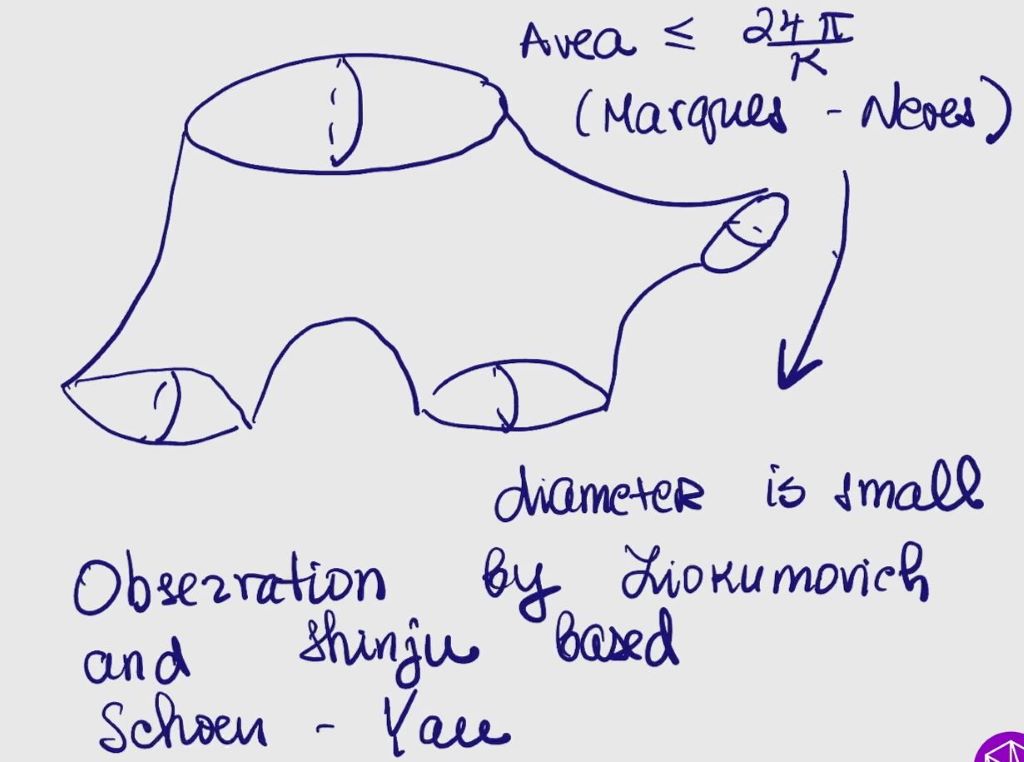 Area ≤ 24π/K
(Marques - Neves)
diameter is small
Observation by Liokumovich
and Shinju based
Schoen - Yau